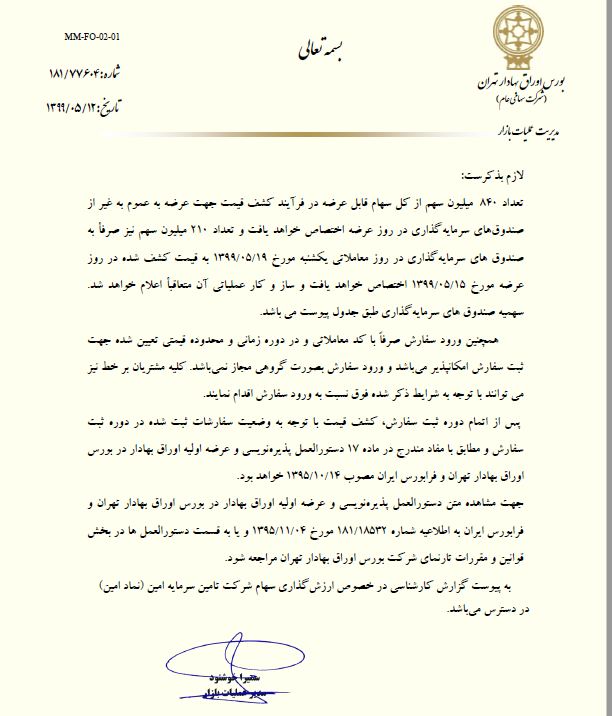 MM-FO-02-01
بسمه تعالی
شماره: ۱۸۱/۷۷۶۰۴
تاریخ: ۱۳۹۹/۰۵/۱۲
بورس اوراق بهادار تهران
(شرکت سهامی عام)
مدیریت عملیات بازار
لازم بذکرست:
تعداد ۸۴۰ میلیون سهم از کل سهام قابل عرضه در فرآیند کشف قیمت جهت عرضه به عموم به غیر از
صندوق‌های سرمایه‌گذاری در روز عرضه اختصاص خواهد یافت و تعداد ۲۱۰ میلیون سهم نیز صرفاً به
صندوق های سرمایه‌گذاری در روز معاملاتی یکشنبه مورخ ۱۳۹۹/۰۵/۱۹ به قیمت کشف شده در روز
عرضه مورخ ۱۳۹۹/۰۵/۱۵ اختصاص خواهد یافت و ساز و کار عملیاتی آن متعاقباً اعلام خواهد شد.
سهمیه صندوق های سرمایه‌گذاری طبق جدول پیوست می باشد.
همچنین ورود سفارش صرفاً با کد معاملاتی و در دوره زمانی و محدوده قیمتی تعیین شده جهت
ثبت سفارش امکانپذیر می‌باشد و ورود سفارش بصورت گروهی مجاز نمی‌باشد. کلیه مشتریان بر خط نیز
می توانند با توجه به شرایط ذکر شده فوق نسبت به ورود سفارش اقدام نمایند.
پس از اتمام دوره ثبت سفارش، کشف قیمت با توجه به وضعیت سفارشات ثبت شده در دوره ثبت
سفارش و مطابق با مفاد مندرج در ماده ۱۷ دستورالعمل پذیره‌نویسی و عرضه اولیه اوراق بهادار در بورس
اوراق بهادار تهران و فرابورس ایران مصوب ۱۳۹۵/۱۰/۱۴ خواهد بود.
جهت مشاهده متن دستورالعمل پذیره‌نویسی و عرضه اولیه اوراق بهادار در بورس اوراق بهادار تهران و
فرابورس ایران به اطلاعیه شماره ۱۸۱/۱۸۵۳۲ مورخ ۱۳۹۵/۱۱/۰۴ و یا به قسمت دستورالعمل ها در بخش
قوانین و مقررات تارنمای شرکت بورس اوراق بهادار تهران مراجعه شود.
به پیوست گزارش کارشناسی در خصوص ارزش گذاری سهام شرکت تامین سرمایه امین (نماد امین)
در دسترس می‌باشد.
سمیرا خوشنود
مدیر عملیات بازار